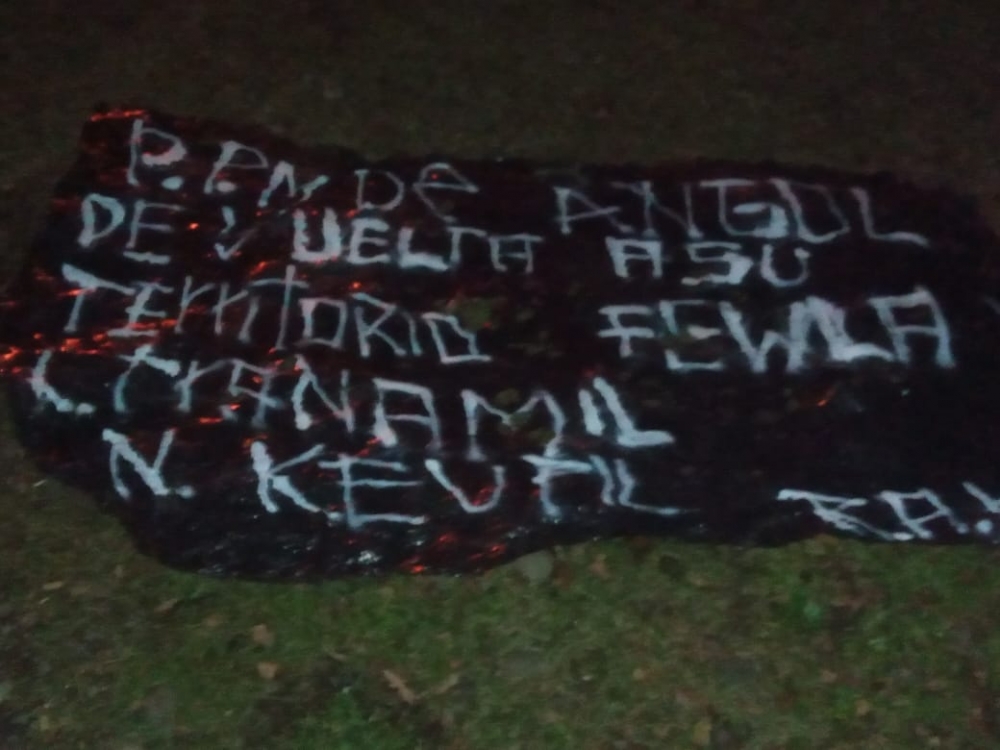 P.P.M DE ANGOL
DE VUELTA A SU
TERRITORIO FEWLA
L. TraNAMIL
N. KEUPIL
RA!